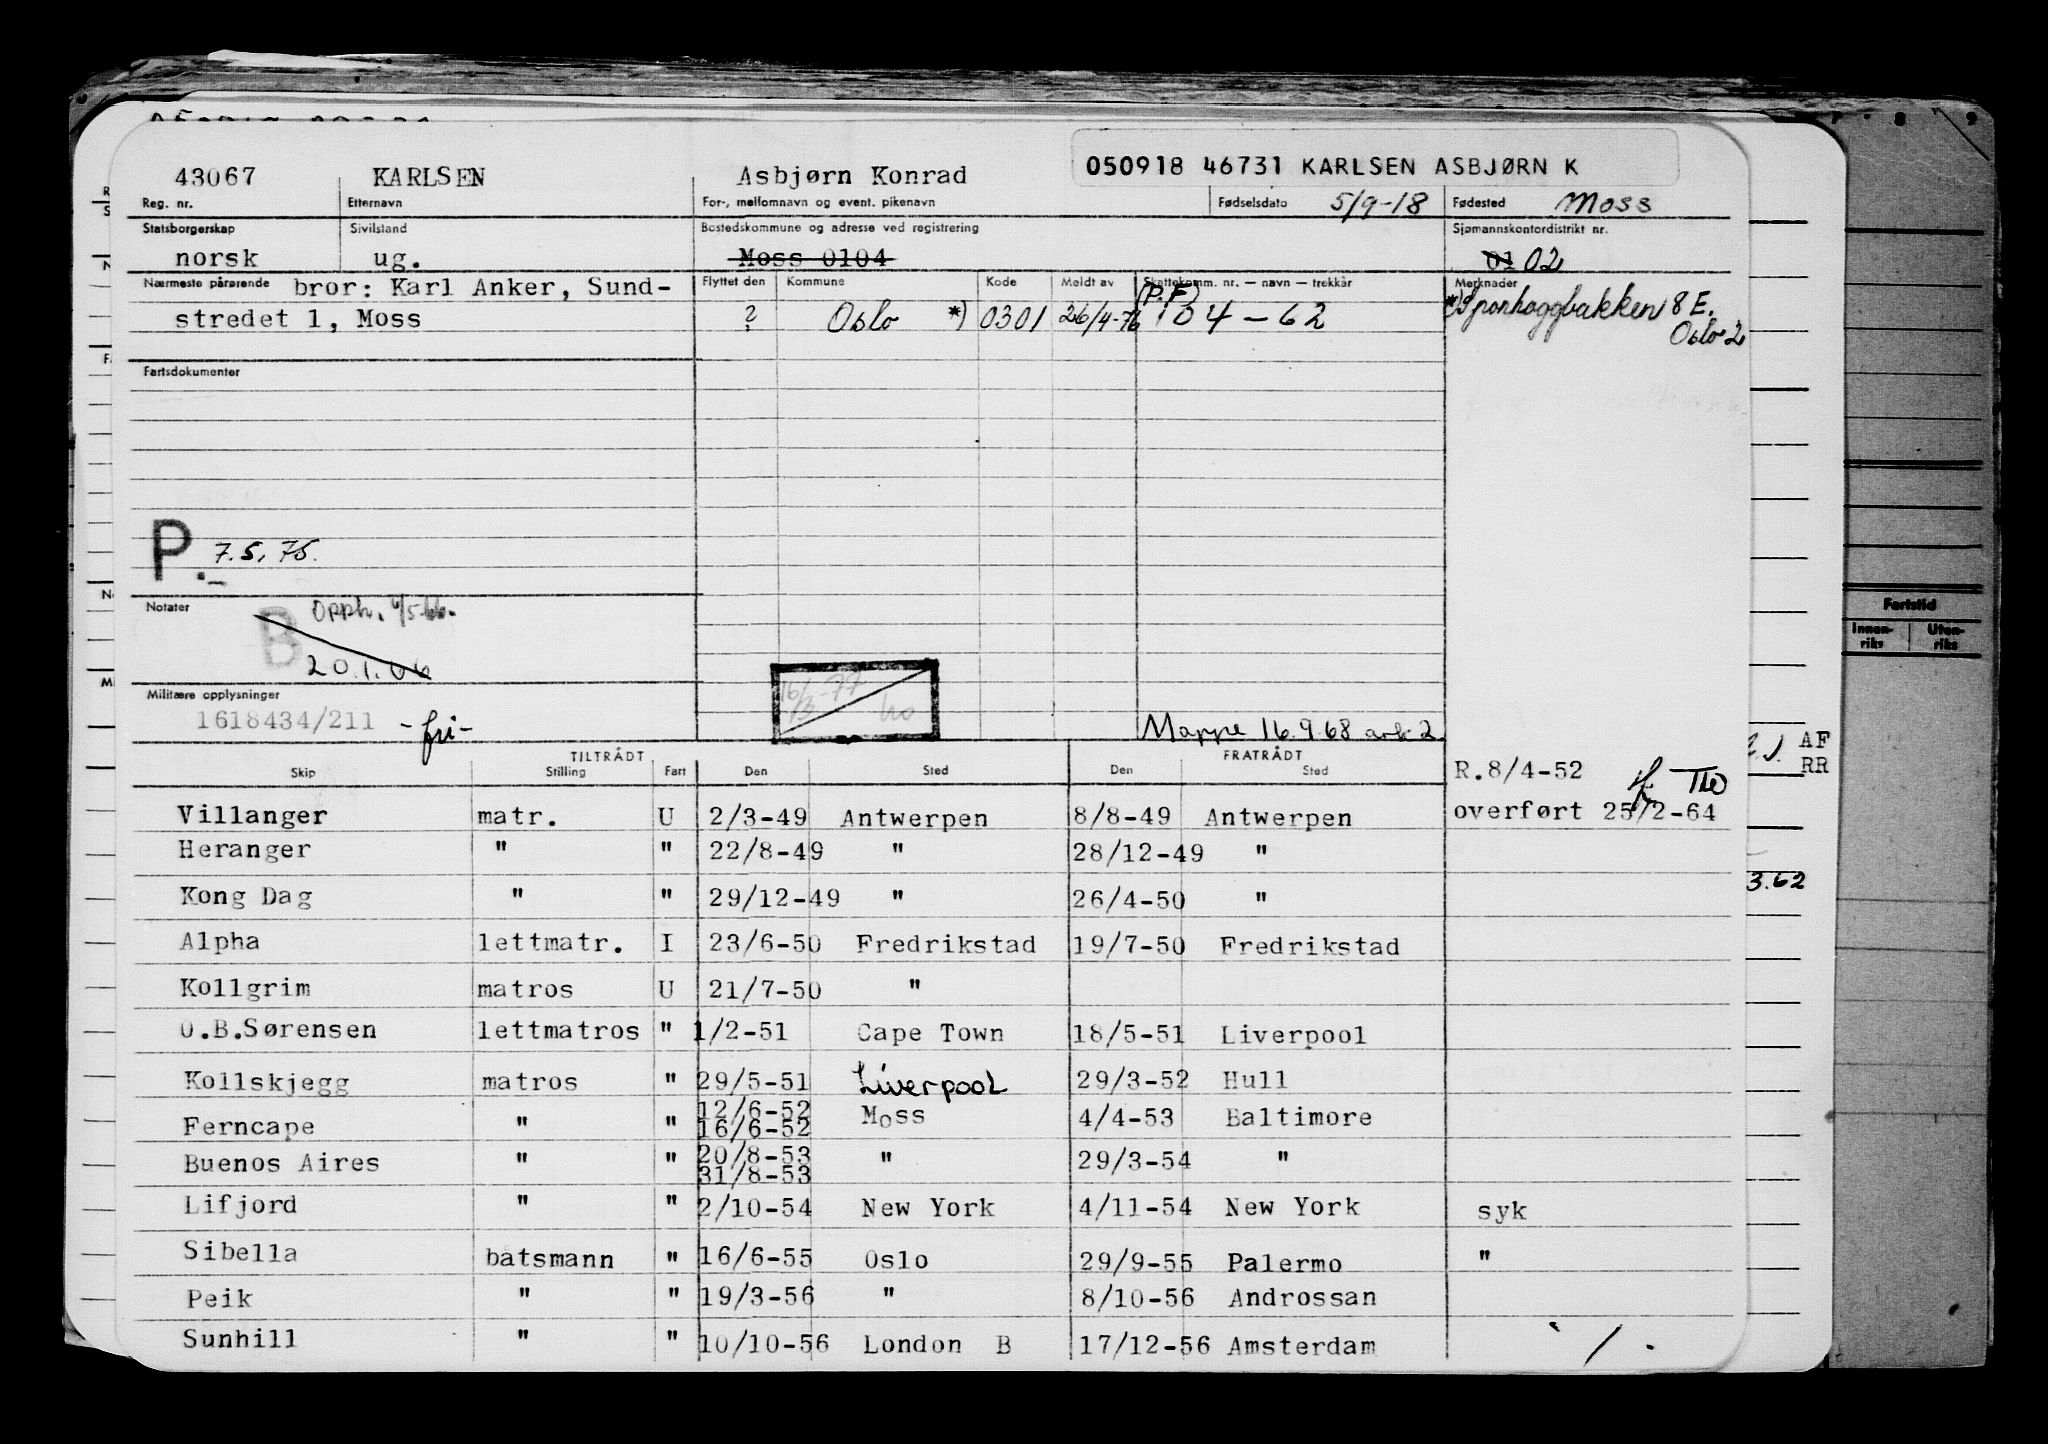 050918 46731 KARLSEN ASBJØRN K
43067 KARLSEN Asbjørn Konrad
Reg. nr. Etternavn For-, mellomnavn og event. pikenavn Fødselsdato 5/9-18 Fødested Moss
Statsborgerskap Sivilstand Bostedskommune og adresse ved registrering Sjømannskontordistrikt nr.
norsk ug. Moss 0104 01 02
Nærmeste pårørende bror: Karl Anker, Sund- Flyttet den Kommune Kode Meldt av Skattekomm. nr. — navn — trekkår Merknader
stredet 1, Moss ? Oslo *) 0301 26/4-76 (P.F) 104-62 *) Sponhoggbakken 8 E.
Oslo 2
Fartsdokumenter
P. 7.5.75.
Notater B Opph. 4/5-66.
20.1.66
Militære opplysninger
1618434/211 -fri-
16/3-77 ho
Mappe 16.9.68 ark 2.
TILTRÅDT FRATRÅDT
Skip Stilling Fart Den Sted Den Sted R.8/4-52
Villanger matr. U 2/3-49 Antwerpen 8/8-49 Antwerpen overført 25/2-64
Heranger " " 22/8-49 " 28/12-49 "
Kong Dag " " 29/12-49 " 26/4-50 "
Alpha lettmatr. I 23/6-50 Fredrikstad 19/7-50 Fredrikstad
Kollgrim matros U 21/7-50 "
O.B.Sørensen lettmatros " 1/2-51 Cape Town 18/5-51 Liverpool
Kollskjegg matros " 29/5-51 Liverpool 29/3-52 Hull
12/6-52
Ferncape " " 16/6-52 Moss 4/4-53 Baltimore
20/8-53
Buenos Aires " " 31/8-53 " 29/3-54 "
Lifjord " " 2/10-54 New York 4/11-54 New York syk
Sibella båtsmann " 16/6-55 Oslo 29/9-55 Palermo "
Peik " " 19/3-56 " 8/10-56 Androssan
Sunhill " " 10/10-56 London B 17/12-56 Amsterdam
8 9
Fartstid
Innen-riks Uten-riks
AF
RR
3.62